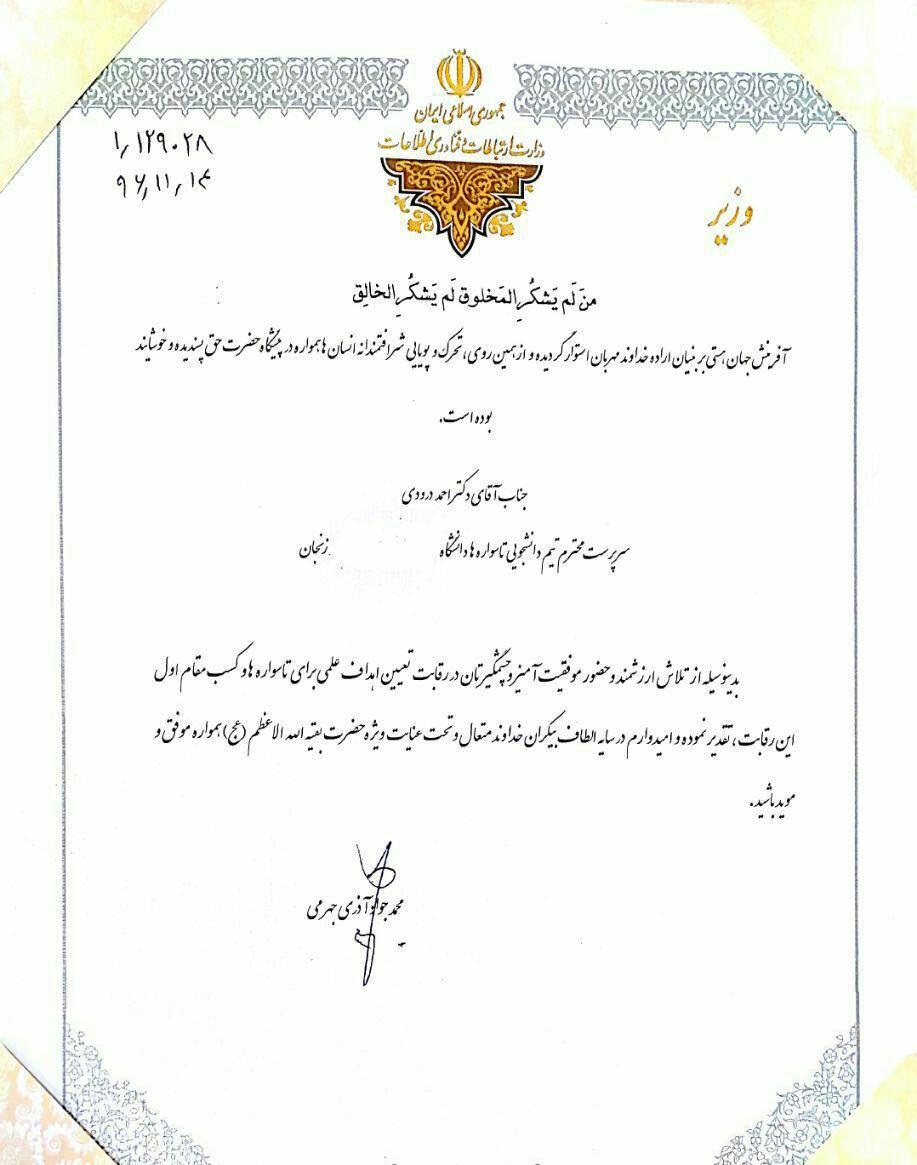 جمهوری اسلامی ایران
وزارت ارتباطات و فناوری اطلاعات
۱٫۱۲۹۰۲۸
۹۶٫۱۱٫۱۴
وزیر
مَن لَم يَشكُرِ المَخلوق لَم يَشكُرِ الخالِق
آفرینش جهان هستی بر بنیان اراده خداوند مهربان استوار گردیده و از همین روی، تحرک و پویایی شرافتمندانه انسان ها همواره در پیشگاه حضرت حق پسندیده و خوشایند
بوده است.
جناب آقای دکتر احمد درودی
سرپرست محترم تیم دانشجویی تاسواره ها دانشگاه زنجان
بدینوسیله از تلاش ارزشمند و حضور موفقیت آمیز و چشمگیرتان در رقابت تعیین اهداف علمی برای تاسواره ها و کسب مقام اول
این رقابت، تقدیر نموده و امیدوارم در سایه الطاف بیکران خداوند متعال و تحت عنایت ویژه حضرت بقیه الله الاعظم (عج) همواره موفق و
موید باشید.
محمد جواد آذری جهرمی